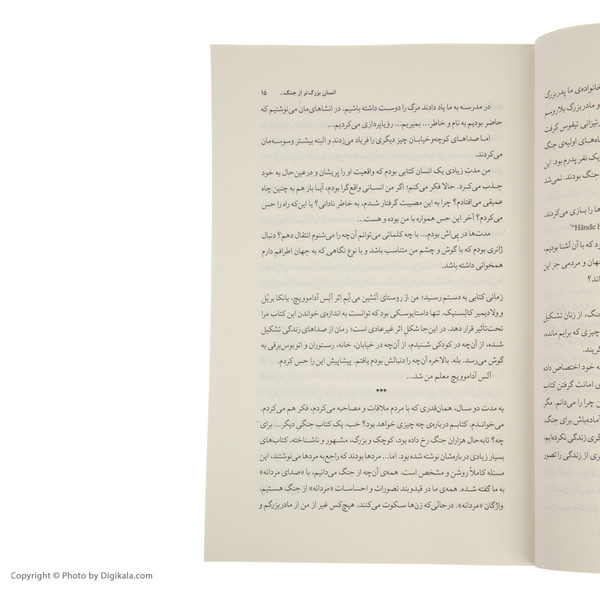 انسان بزرگ‌تر از جنگ... ۱۵
در مدرسه به ما یاد دادند مرگ را دوست داشته باشیم. در انشاهای‌مان می‌نوشتیم که
حاضر بودیم به نام و خاطر... بمیریم... رؤیاپردازی می‌کردیم...
اما صداهای کوچه‌وخیابان چیز دیگری را فریاد می‌زدند و البته بیشتر وسوسه‌مان
می‌کردند.
من مدت زیادی یک انسان کتابی بودم که واقعیت او را پریشان و درعین‌حال به خود
جذب می‌کرد. حالا فکر می‌کنم؛ اگر من انسانی واقع‌گرا بودم، آیا باز هم به چنین چاه
عمیقی می‌افتادم؟ چرا به این مصیبت گرفتار شدم، به خاطر نادانی؟ یا این‌که راه را حس
می‌کردم؟ آخر این حس همواره با من بوده و هست...
مدت‌ها در پی‌اش بودم... با چه کلماتی می‌توانم آن‌چه را می‌شنوم انتقال دهم؟ دنبال
ژانری بودم که با گوش و چشم من متناسب باشد و با نوع نگاهی که به جهان اطرافم دارم
همخوانی داشته باشد.
زمانی کتابی به دستم رسید؛ من از روستای آتشین می‌آیم اثر آلس آداموویچ، یانکا بریل
و ولادیمیر کالسنیک. تنها داستایوسکی بود که توانست به اندازه‌ی خواندن این کتاب مرا
تحت‌تأثیر قرار دهد. در این‌جا شکل اثر غیرعادی است؛ رمان از صداهای زندگی تشکیل
شده، از آن‌چه در کودکی شنیدم، از آن‌چه در خیابان، خانه، رستوران و اتوبوس‌برقی به
گوش می‌رسد. بله. بالاخره آن‌چه را دنبالش بودم یافتم. پیشاپیش این را حس کردم.
آلس آداموویچ معلم من شد...
***
به مدت دو سال، همان‌قدری که با مردم ملاقات و مصاحبه می‌کردم، فکر هم می‌کردم.
می‌خواندم. کتابم درباره‌ی چه چیزی خواهد بود؟ خب، یک کتاب جنگی دیگر... برای
چه؟ تابه‌حال هزاران جنگ رخ داده بود، کوچک و بزرگ، مشهور و ناشناخته. کتاب‌های
بسیار زیادی درباره‌شان نوشته شده بود. اما... مردها بودند که راجع به مردها می‌نوشتند، این
مسئله کاملاً روشن و مشخص است. همه‌ی آن‌چه از جنگ می‌دانیم، با «صدای مردانه»
به ما گفته شده. همه‌ی ما در قیدوبند تصورات و احساسات «مردانه» از جنگ هستیم.
واژگان «مردانه». درحالی‌که زن‌ها سکوت می‌کنند. هیچ‌کس غیر از من از مادربزرگم و
خانواده‌ی ما پدربزرگ
و مادربزرگ بلاروسم
تیفوس گرفت
اولیه‌ی جنگ
یک نفر پدرم بود. این
جنگ بودند. نمی‌شد
را بازی می‌کردند.
"Hände h
که با آن آشنا بودیم،
جهان و مردمی جز این
جنگ، از زنان تشکیل
چیزی که برایم مانده،
به خود اختصاص داده
امانت گرفتن کتاب
چرا را می‌دانم. مگر
آماده‌باش برای جنگ
زندگی نکرده‌ایم،
از زندگی را تصور
Copyright © Photo by Digikala.com